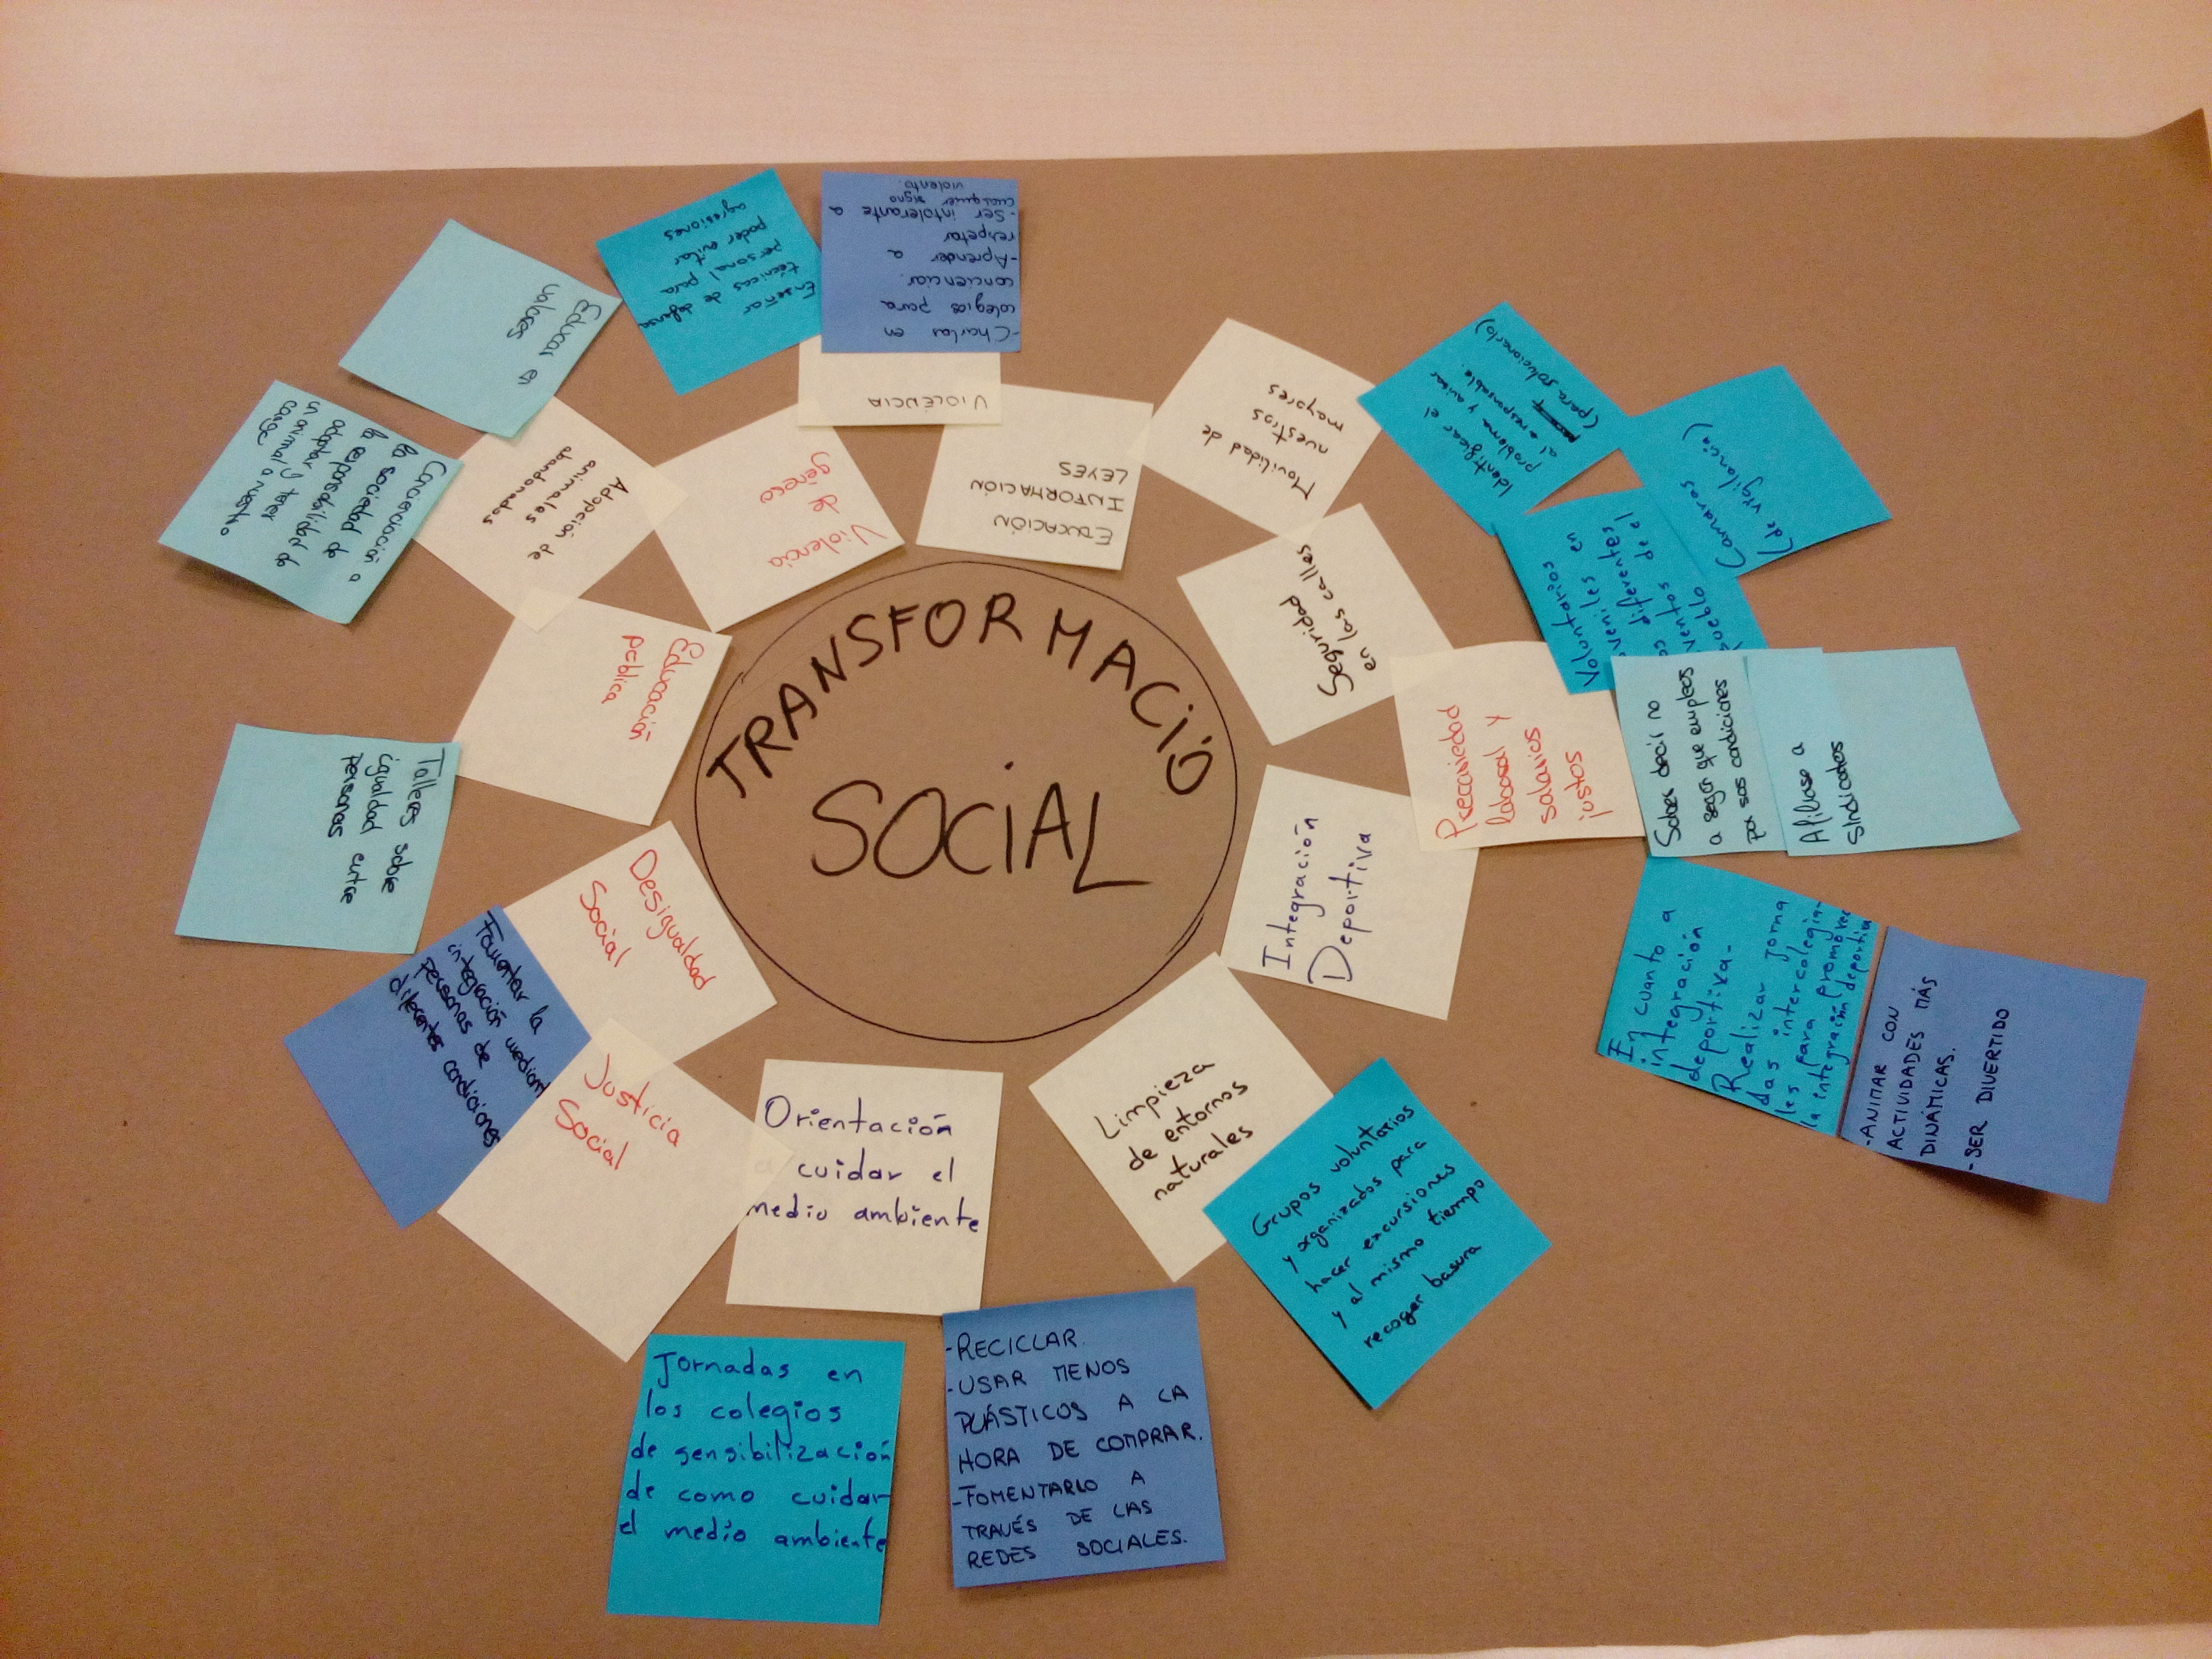 TRANSFORMACIÓ
SOCIAL
VIOLÉNCIA
EDUCACIÓN
INFORMACIÓN
LEYES
Movilidad de
nuestros
mayores
Seguridad
en las calles
Precariedad
laboral y
salarios
justos
Integración
Deportiva
Limpieza
de entornos
naturales
Orientación
a cuidar el
medio ambiente
Justicia
Social
Desigualdad
Social
Educación
pública
Adopción de
animales
abandonados
Violencia
de
género
-Charlas en
colegios para
concienciar.
-Aprender a
respetar
-Ser intolerante a
cualquier signo
violento.
Identificar el
problema y avisar
al responsable.
(para solucionarlo)
Camaras
(de vigilancia)
Voluntarios
juveniles en
los diferentes
eventos del
pueblo
Saber decir no
a según que empleos
por sus condiciones
Afiliarse a
Sindicatos
En cuanto a
integración
deportiva-
Realizar jorna
das intercolegia-
les para promover
la integración deportiva
-ANIMAR CON
ACTIVIDADES MÁS
DINÁMICAS.
-SER DIVERTIDO
Grupos voluntarios
y organizados para
hacer excursiones
y al mismo tiempo
recoger basura
-RECICLAR.
-USAR MENOS
PLÁSTICOS A LA
HORA DE COMPRAR.
-FOMENTARLO A
TRAVÉS DE LAS
REDES SOCIALES.
Jornadas en
los colegios
de sensibilización
de como cuidar
el medio ambiente
Fomentar la
integración mediant
personas de
diferentes condiciones
Talleres sobre
igualdad entre
personas
Concienciación a
la sociedad de
la responsabilidad de
adoptar y tener
un animal a nuestro
cargo
Educar en
valores
Enseñar
técnicas de defensa
personal para
poder evitar
agresiones